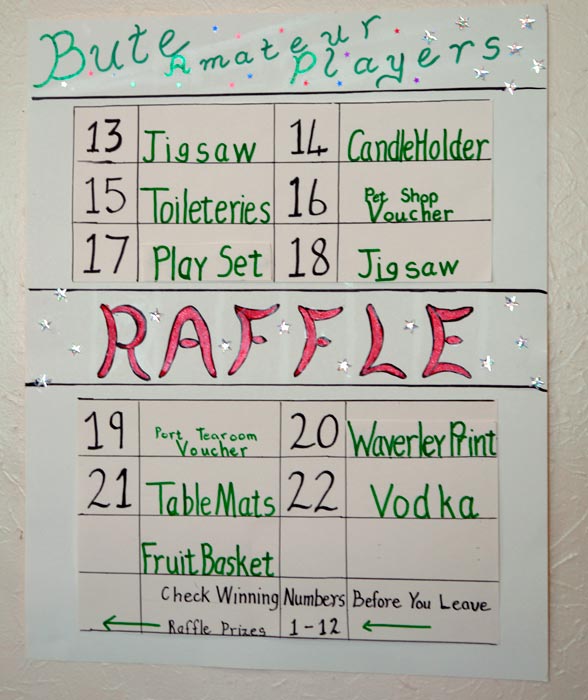 Bute Amateur Players
13 Jigsaw 14 CandleHolder
15 Toileteries 16 Pet Shop Voucher
17 Play Set 18 Jigsaw
RAFFLE
19 Port Tearoom Voucher 20 Waverley Print
21 Table Mats 22 Vodka
Fruit Basket
Check Winning Numbers Before You Leave
Raffle Prizes 1-12